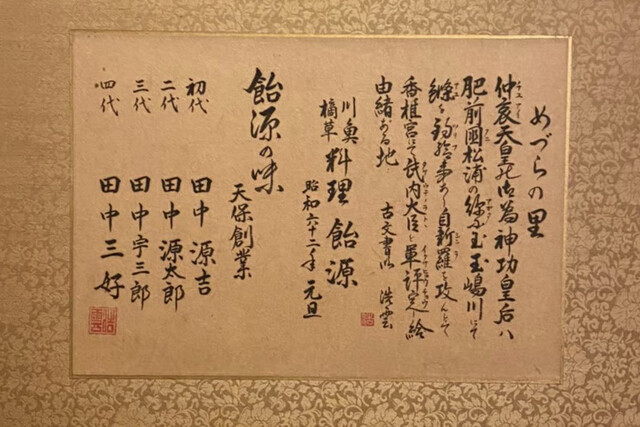 めづらの里
仲哀天皇 神功皇后ハ
肥前國松浦の 玉嶋川にて
自新羅を攻んとて
香椎宮にて武内大臣と軍評定し給
由緒ある地 古文書 浩雲
川魚 摘草 料理 飴源
昭和六十二年 元旦
天保創業
飴源の味
初代 田中 源吉
二代 田中 源太郎
三代 田中宇三郎
四代 田中三好